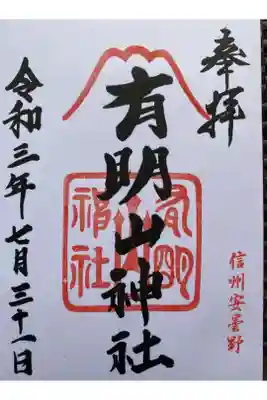 奉拝
信州安曇野
有明山神社
令和三年七月三十一日